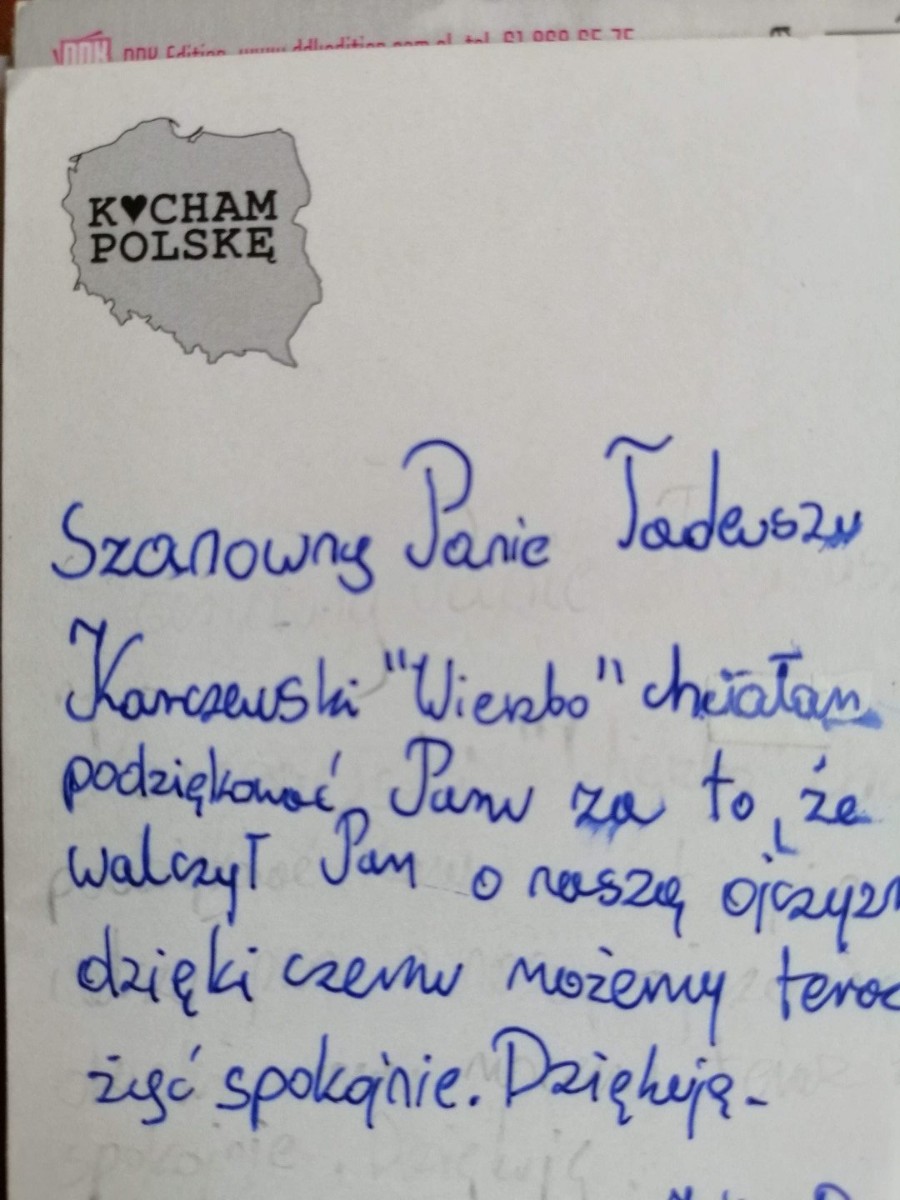 DDK Edition www.ddkedition.com.pl tel. 61 868 85 75
K♥CHAM
POLSKĘ
Szanowny Panie Tadeuszu
Karczewski "Wierzbo" chciałam
podziękować Panu za to, że
walczył Pan o naszą ojczyzn
dzięki czemu możemy teraz
żyć spokojnie. Dziękuję.